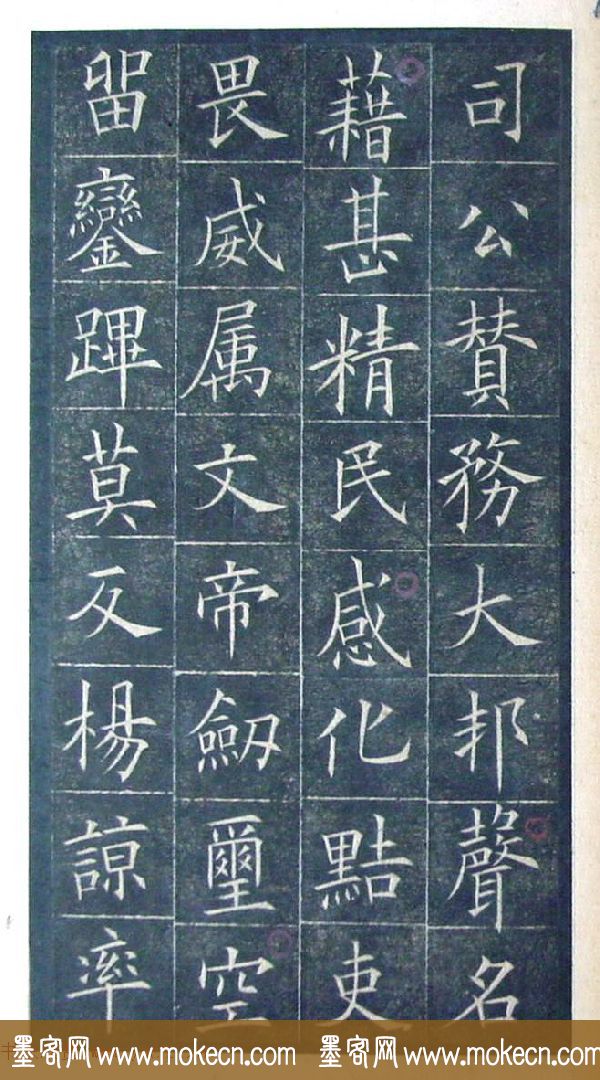 司公賛務大邦聲名
藉甚精民感化黠吏
畏威属文帝劒璽空
留鑾蹕莫反楊諒率
墨客网 www.mokecn.com 墨客网 www.mokecn.com